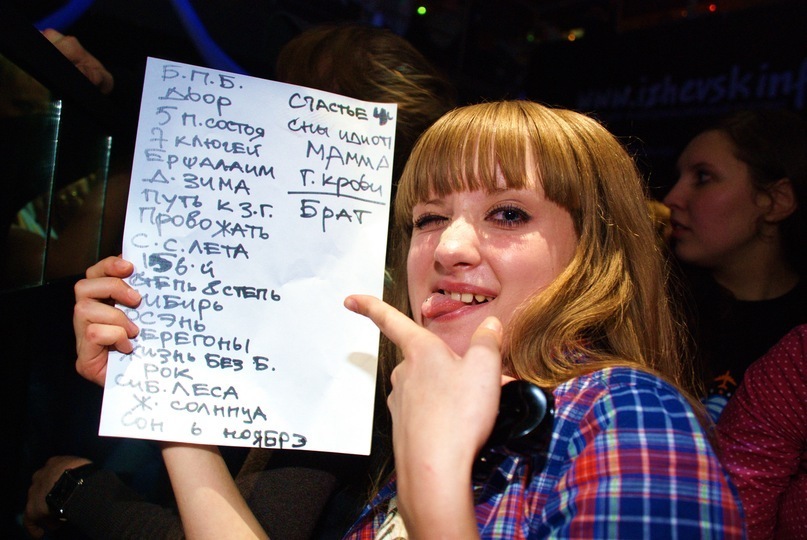 Б.П.Б.
ДВОР
5 П.СОСТОЯ
7 КЛЮЧЕЙ
ЕРШАЛАИМ
Д. ЗИМА
ПУТЬ К З.Г.
ПРОВОЖАТЬ
С.С.ЛЕТА
156-Й
СТЕПЬ & СТЕПЬ
СИБИРЬ
ОСЭНЬ
БЕРЕГОНЫ
ЖИЗНЬ БЕЗ Б.
РОК
СИБ.ЛЕСА
Ж. СОЛНЦА
СОН 6 НОЯБРЭ
СЧАСТЬЕ
СНЫ ИДИОТ
МАММА
Г.КРОВИ
БРАТ
www.izhevskinf